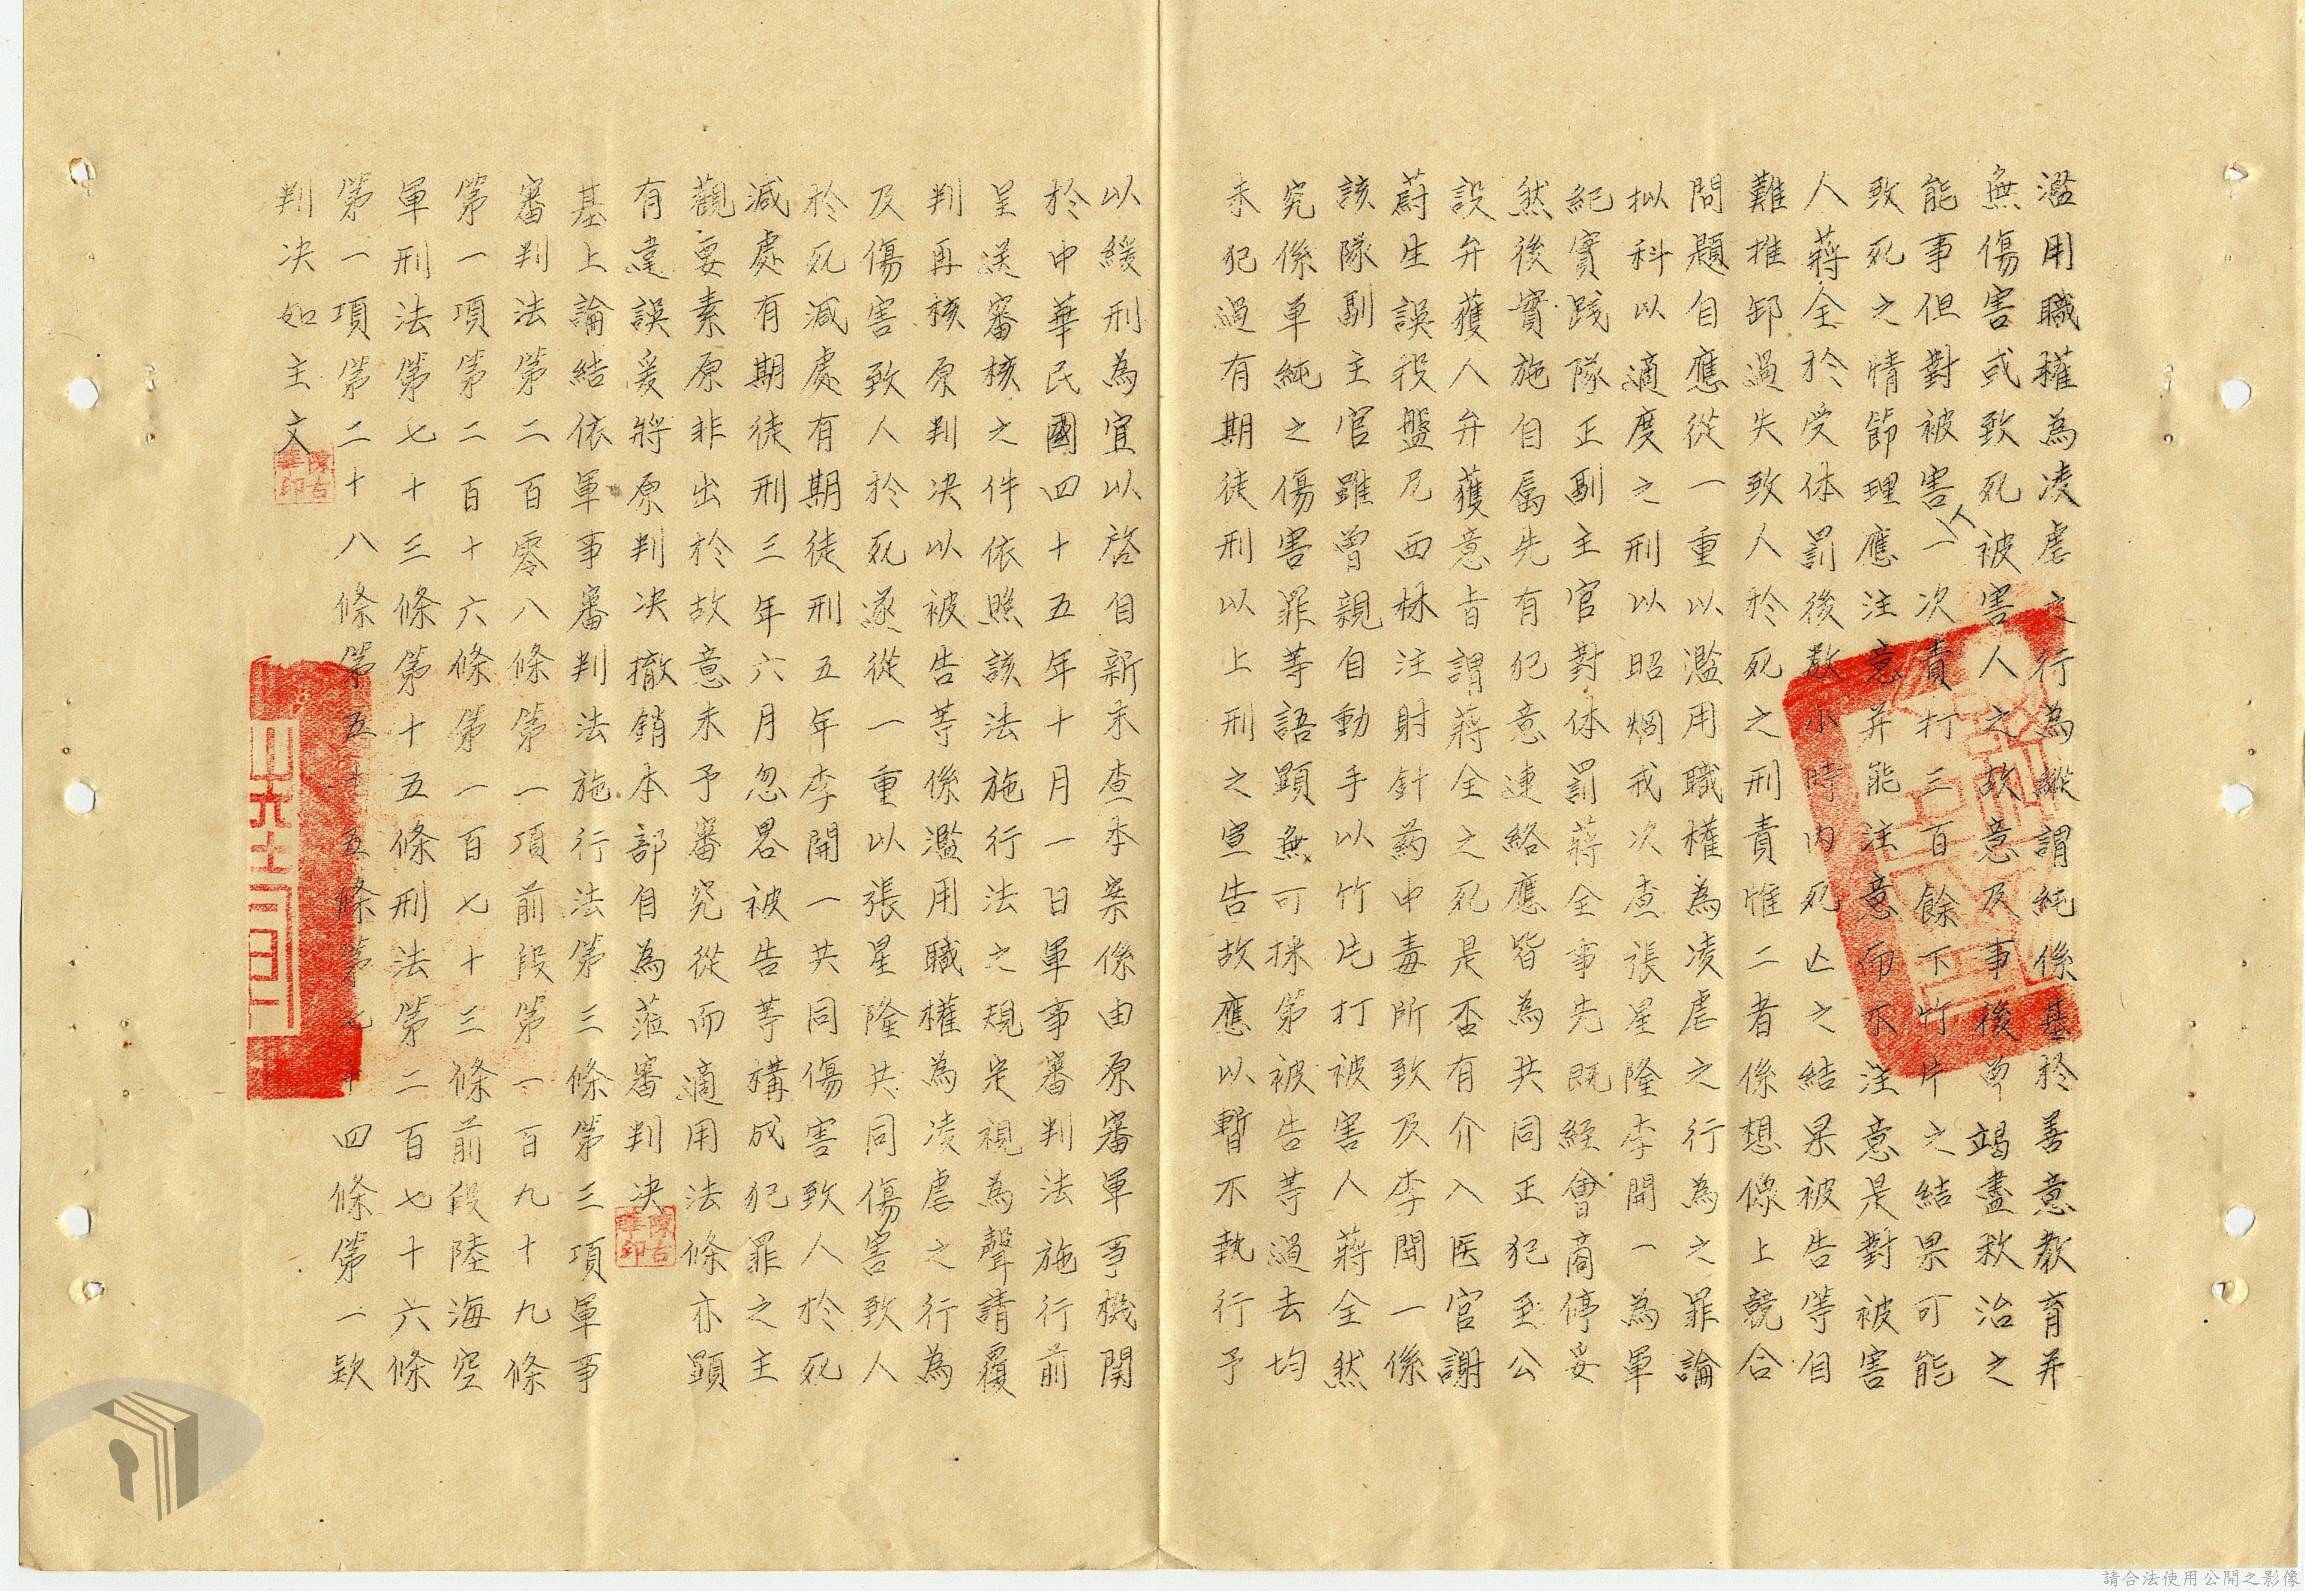 濫用職權為凌虐之行為縱謂純係基於善意教育并
無傷害或致死被害人之故意及事後曾竭盡救治之
能事但對被害人一次責打三百餘下竹片之結果可能
致死之情節理應注意并能注意而不注意是對被害
人蔣全於受体罰後數小時內死亡之結果被告等自
難推卸過失致人於死之刑責惟二者係想像上競合
問題自應從一重以濫用職權為凌虐之行為之罪論
拟科以適度之刑以昭烱戒次查張星隆李開一為軍
紀實踐隊正副主官對体罰蔣全事先既經會商停妥
然後實施自屬先有犯意連絡應皆為共同正犯至公
設弁護人弁護意旨謂蔣全之死是否有介入医官謝
蔚生誤投盤尼西林注射針药中毒所致及李開一係
該隊副主官雖曾親自動手以竹片打被害人蔣全然
究係单純之傷害罪等語顕無可採第被告等過去均
未犯過有期徒刑以上刑之宣告故應以暫不執行予
以緩刑為宜以啓自新未查本案係由原審軍事機関
於中華民國四十五年十月一日軍事審判法施行前
呈送審核之件依照該法施行法之規定視為聲請覆
判再核原判决以被告等係濫用職權為凌虐之行為
及傷害致人於死遂從一重以張星隆共同傷害致人
於死減處有期徒刑五年李開一共同傷害致人於死
減處有期徒刑三年六月忽畧被告等構成犯罪之主
觀要素原非出於故意未予審究從而適用法條亦顕
有違誤爰將原判决撤銷本部自為蒞審判决
基上論結依軍事審判法施行法第三條第三項軍事
審判法第二百零八條第一項前段第一百九十九條
第一項第二百十六條第一百七十三條前段陸海空
軍刑法第七十三條第十五條刑法第二百七十六條
第一項第二十八條第五十五條第七十四條第一款
判决如主文
請合法使用公開之影像